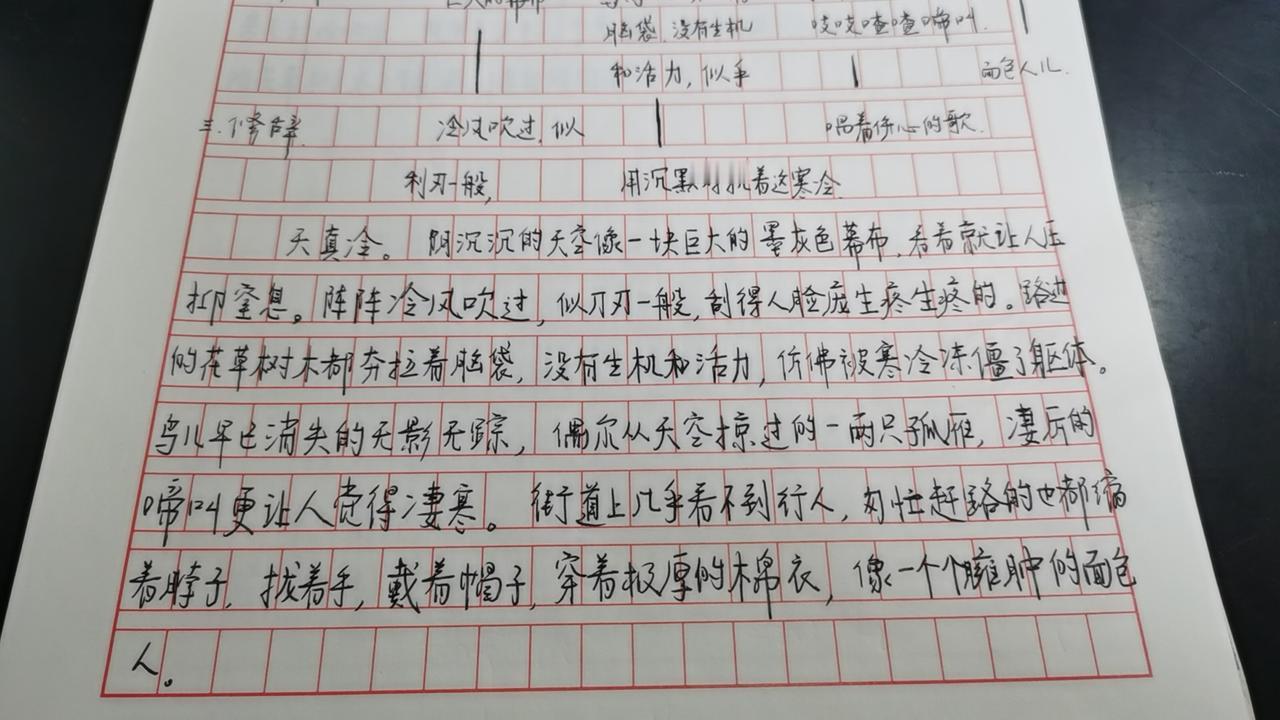 脑袋,没有生机 吱吱喳喳啼叫.
和活力,似乎 面包人儿.
三.修辞. 冷风吹过,似 唱着伤心的歌.
利刃一般, 用沉默对抗着这寒冷
天真冷。阴沉沉的天空像一块巨大的墨灰色幕布,看着就让人压
抑窒息。阵阵冷风吹过,似刀刃一般,刮得人脸庞生疼生疼的。路边
的花草树木都夯拉着脑袋,没有生机和活力,仿佛被寒冷冻僵了躯体。
鸟儿早已消失的无影无踪,偶尔从天空掠过的一两只孤雁,凄厉的
啼叫更让人觉得凄寒。街道上几乎看不到行人,匆忙赶路的也都缩
着脖子,拢着手,戴着帽子,穿着极厚的棉衣,像一个个臃肿的面包
人。